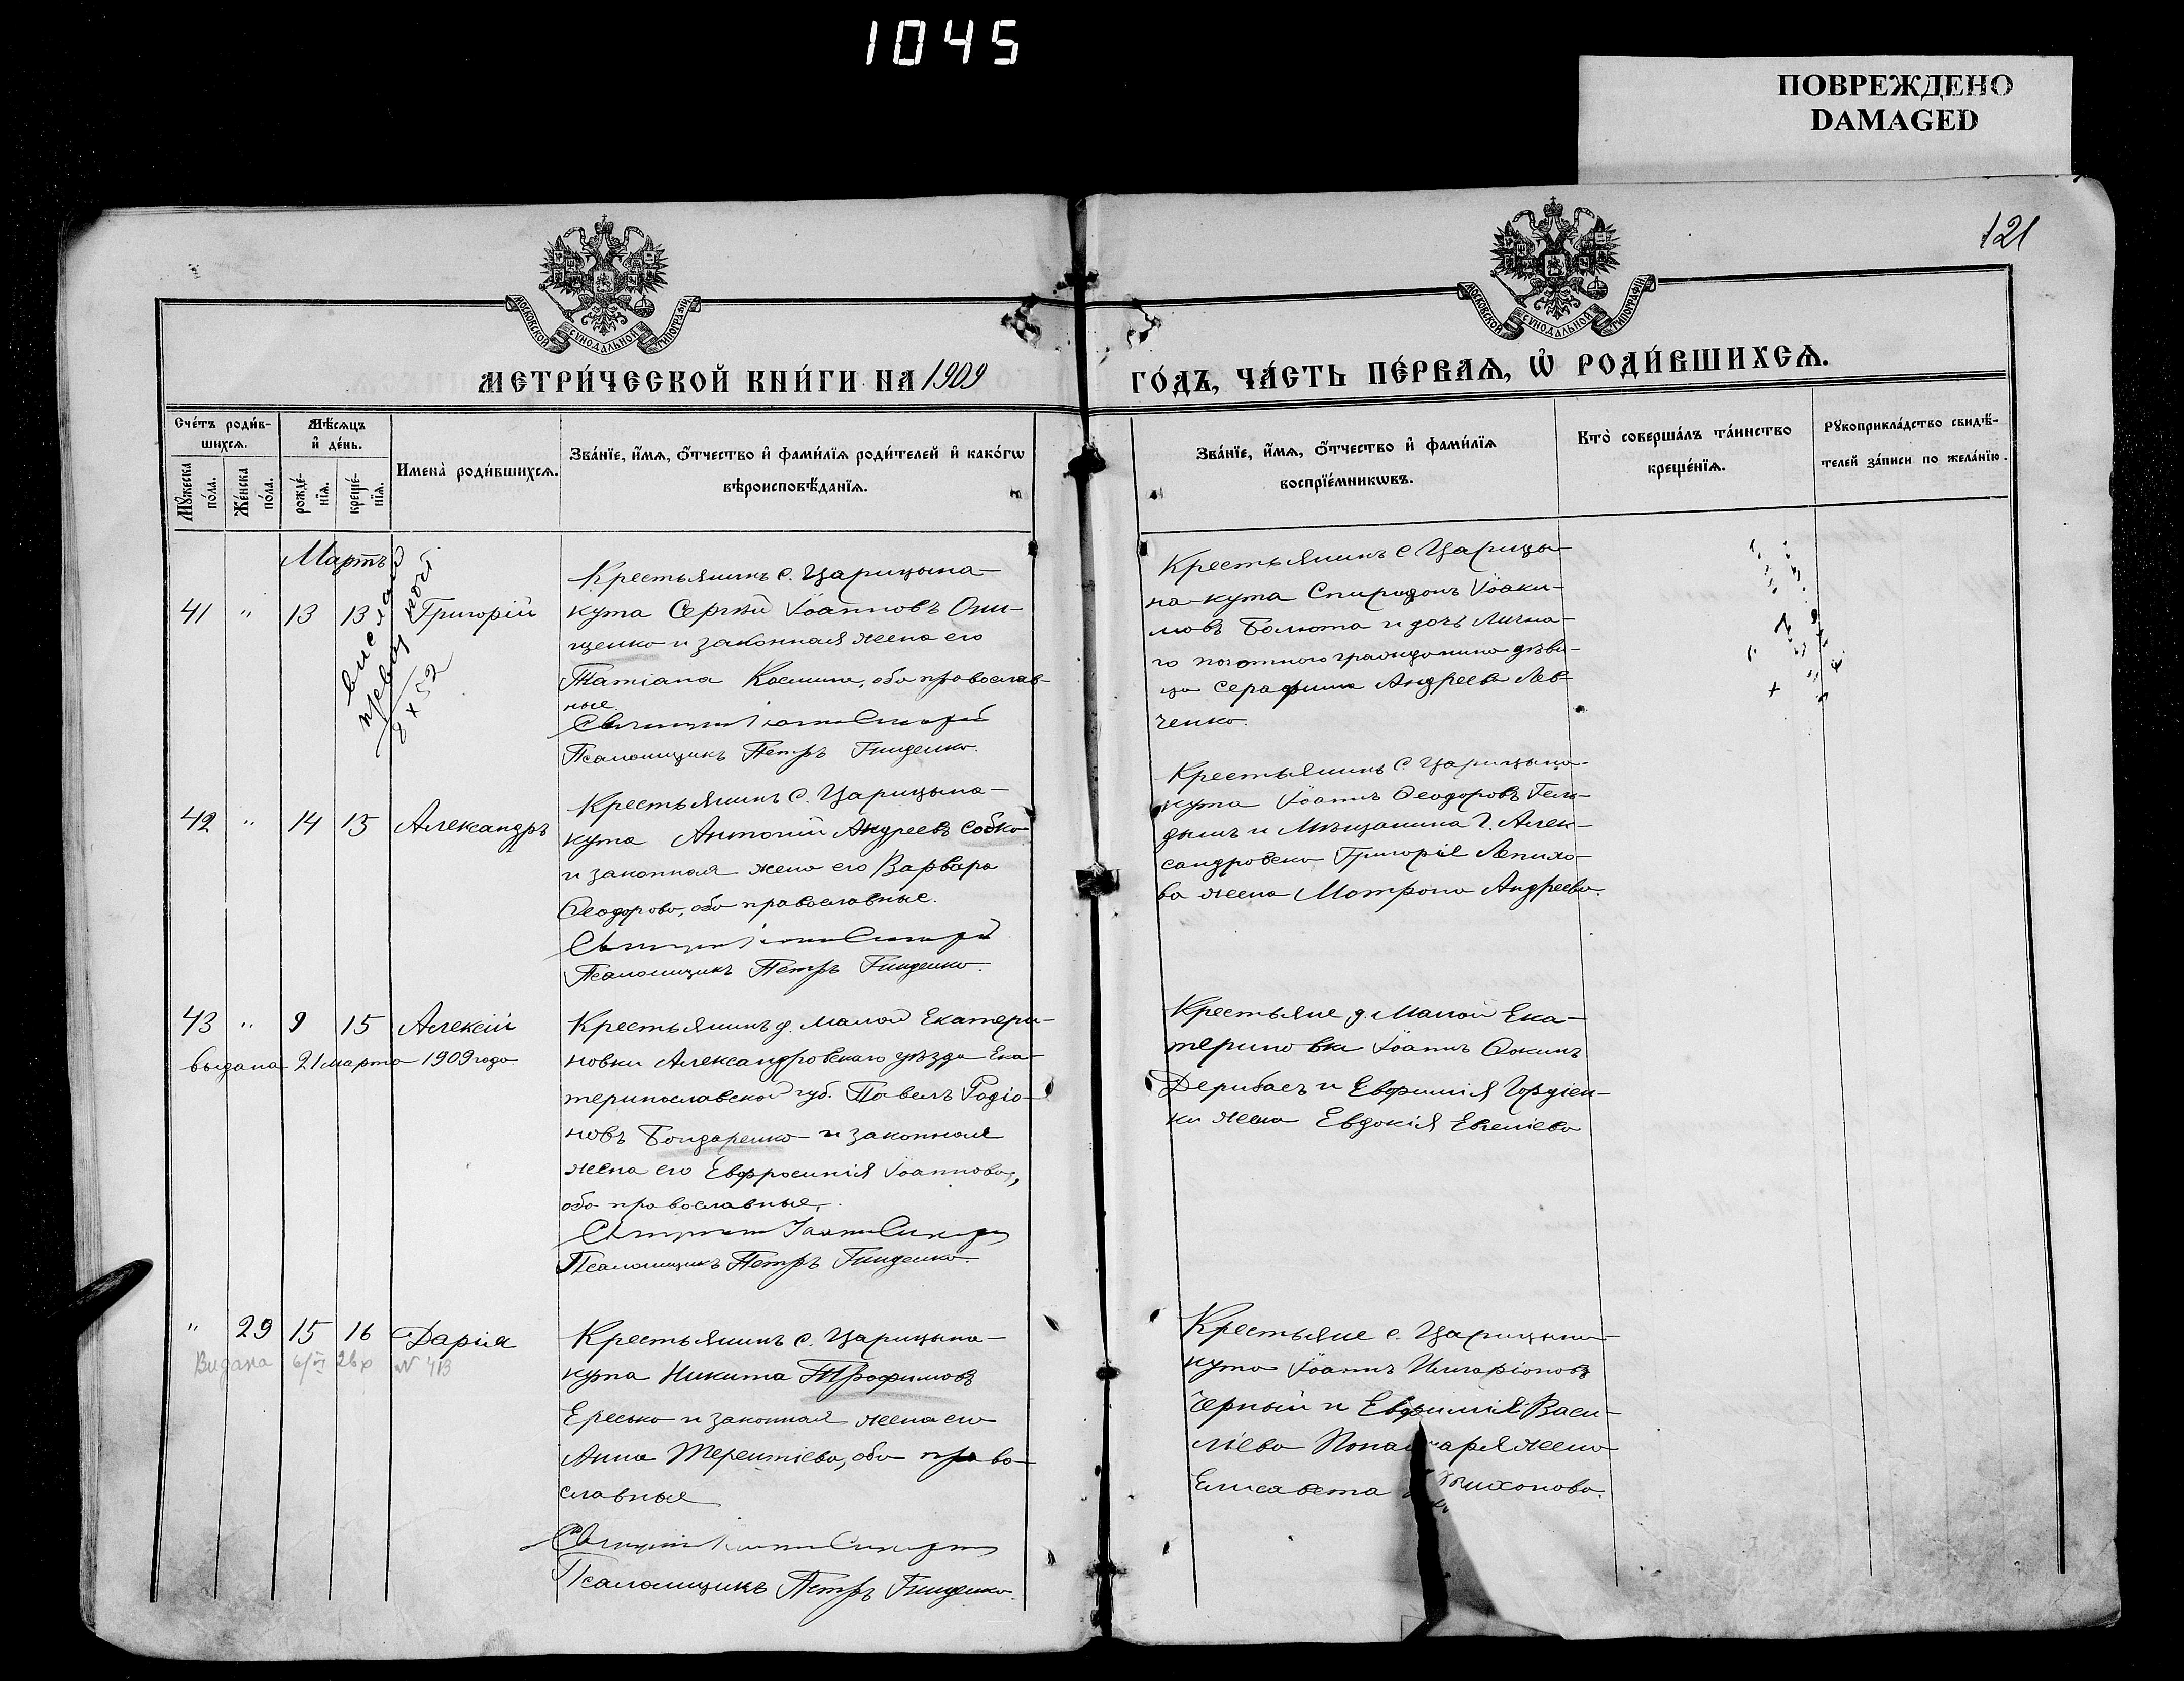 1045
ПОВРЕЖДЕНО
DAMAGED
121
МОСКОВСКОЙ СѴНОДАЛЬНОЙ ТИПОГРАФІИ
МОСКОВСКОЙ СѴНОДАЛЬНОЙ ТИПОГРАФІИ
МЕТРИ́ЧЕСКОЙ КНИ́ГИ НА 1909
ГО́ДЪ, ЧА́СТЬ ПЕ́РВАѦ, Ѡ҆ РОДИ́ВШИХСѦ.
Сче́тъ роди́в-
шихсѧ.
Мꙋ́жеска по́ла.
Же́нска по́ла.
Мѣ́сѧцъ
и҆ де́нь.
рожде́-
нїѧ.
креще́-
нїѧ.
Имена̀ роди́вшихсѧ.
Зва́нїе, и҆́мѧ, ѻ҆́тчество и҆ фами́лїѧ роди́телей и҆ како́гѡ
вѣроисповѣ́данїѧ.
Зва́нїе, и҆́мѧ, ѻ҆́тчество и҆ фами́лїѧ
воспрїе́мникѡвъ.
Кто̀ соверша́лъ та́инство
креще́нїѧ.
Рꙋкоприкла́дство свидѣ́-
телей за́писи по жела́нїю.
Мартъ
41 " 13 13 Григорій
Крестьянинъ с. Царицына-
кута Сергѣй Іоанновъ Они-
щенко и законная жена его
Татіана Космина, оба православ-
ные.
Псаломщикъ Петръ Гниденко.
Крестьянинъ с Царицы-
на-кута Спиридонъ Іоаки-
мовъ Болюта и дочь Лична-
го почотного гражданина дѣви-
ца Серафима Андреева Лев-
ченко.
42 " 14 15 Александръ
Крестьянинъ с. Царицына-
кута Антоній Андреевъ Собко
и законная жена его Варвара
Ѳеодорова, оба православные.
Псаломщикъ Петръ Гниденко.
Крестьянинъ с. Царицына-
кута Іоаннъ Ѳеодоровъ
и Мѣщанина г. Алек-
сандровска Григорія Лепихо-
ва жена Матрона Андреева.
43 " 9 15 Алексій
выдана 21 марта 1909 года
Крестьянинъ д. Малой Екатери-
новки Александровскаго уѣзда Ека-
теринославской губ. Павелъ Родіо-
новъ Бондаренко и законная
жена его Евфросинія Іоаннова,
оба православные,
Псаломщикъ Петръ Гниденко.
Крестьяне д. Малой Ека-
териновки Іоаннъ Ѳокинъ
Дерибасъ и Евфимія Гордіен-
ки жена Евдокія Евгеніева
" 29 15 16 Дарія
Видана 6/VI 26 р № 413
Крестьянинъ с. Царицына-
кута Никита Трофимовъ
Ересько и законная жена его
Анна Терентіева, оба право-
славные
Псаломщикъ Петръ Гниденко.
Крестьяне с. Царицына-
кута Іоаннъ Иларіоновъ
Черный и Евфимія Васи-
ліева жена
Елисавета